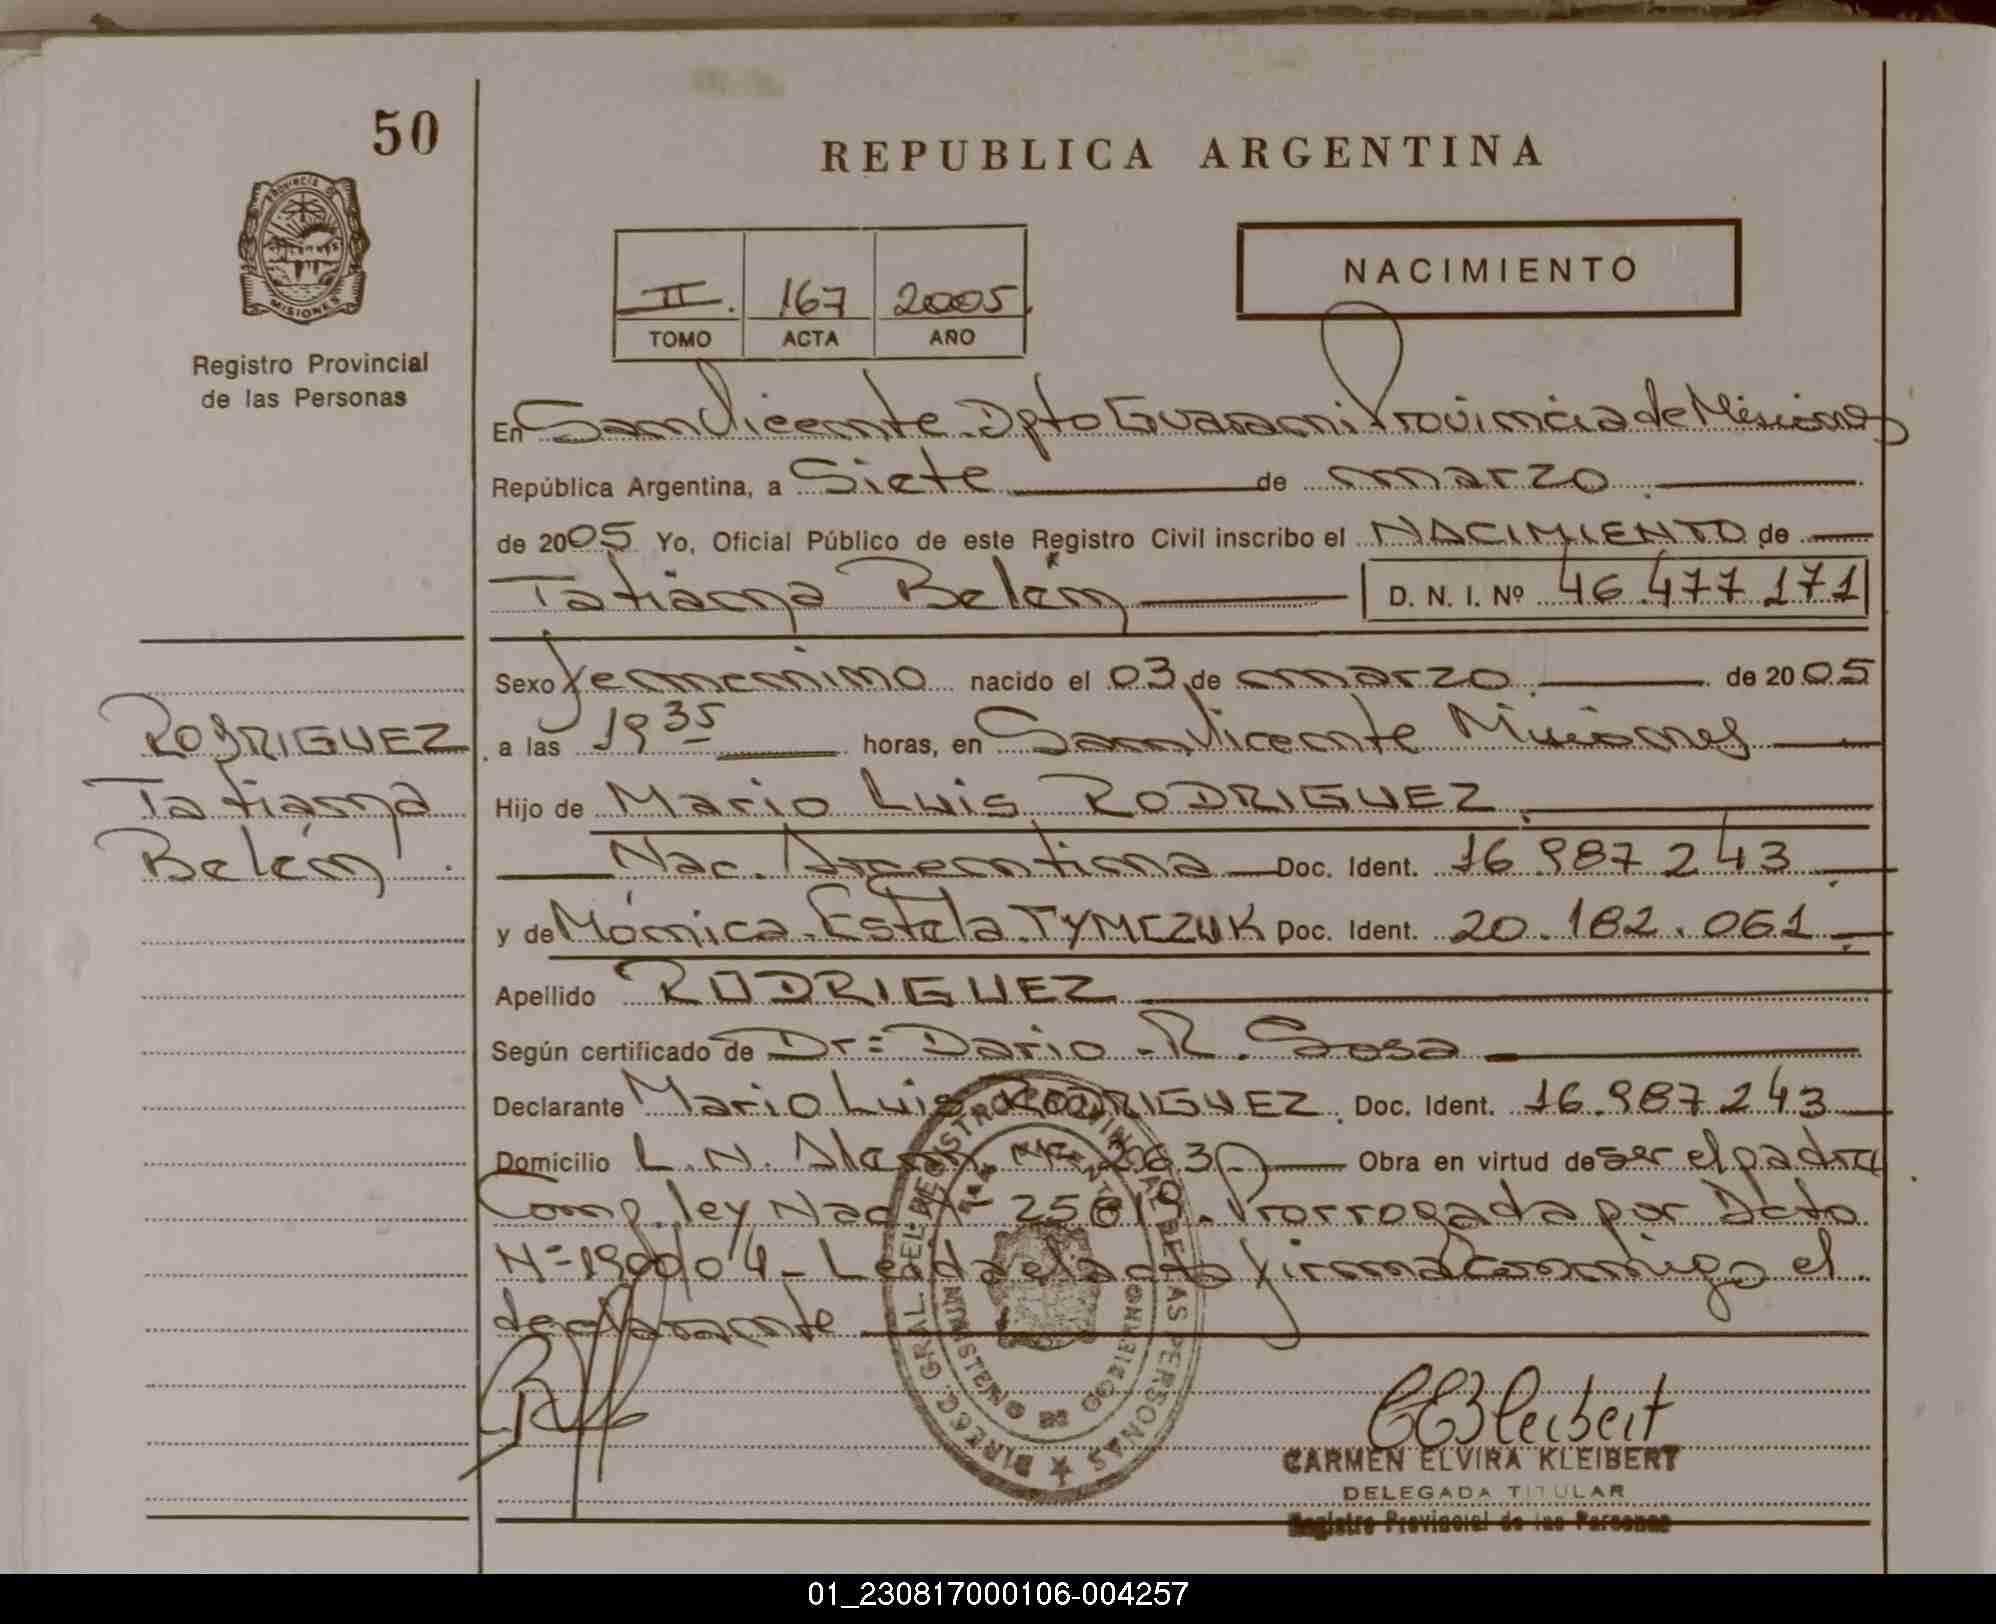 50
REPUBLICA ARGENTINA
PROVINCIA DE
MISIONES
Registro Provincial
de las Personas
II. 167 2005
TOMO ACTA AÑO
NACIMIENTO
En San Vicente Dpto Guarani Provincia de Misiones
República Argentina, a Siete de marzo
de 2005 Yo, Oficial Público de este Registro Civil inscribo el NACIMIENTO de
Tatiana Belén D. N. I. Nº 46.477.171
Sexo femenino nacido el 03 de marzo de 2005
RODRIGUEZ
Tatiana
Belén
a las 19 35 horas, en San Vicente Misiones
Hijo de Mario Luis RODRIGUEZ
Nac. Argentina Doc. Ident. 16.987.243
y de Mónica Estela TYMCZUK Doc. Ident. 20.182.061
Apellido RODRIGUEZ
Según certificado de Dr: Dario R. Sosa
Declarante Mario Luis RODRIGUEZ Doc. Ident. 16.987.243
Domicilio L. N. Alem Obra en virtud de ser el padre
Comp. ley Nac Nº 25819. Prorrogada por Dcto
Nº 190/04 - Leida el acta firma conmigo el
declarante
DIRECC. GRAL. DEL REGISTRO PROVINCIAL DE LAS PERSONAS
MINISTERIO DE GOBIERNO
CEKleibert
CARMEN ELVIRA KLEIBERT
DELEGADA TITULAR
Registro Provincial de las Personas
01_230817000106-004257